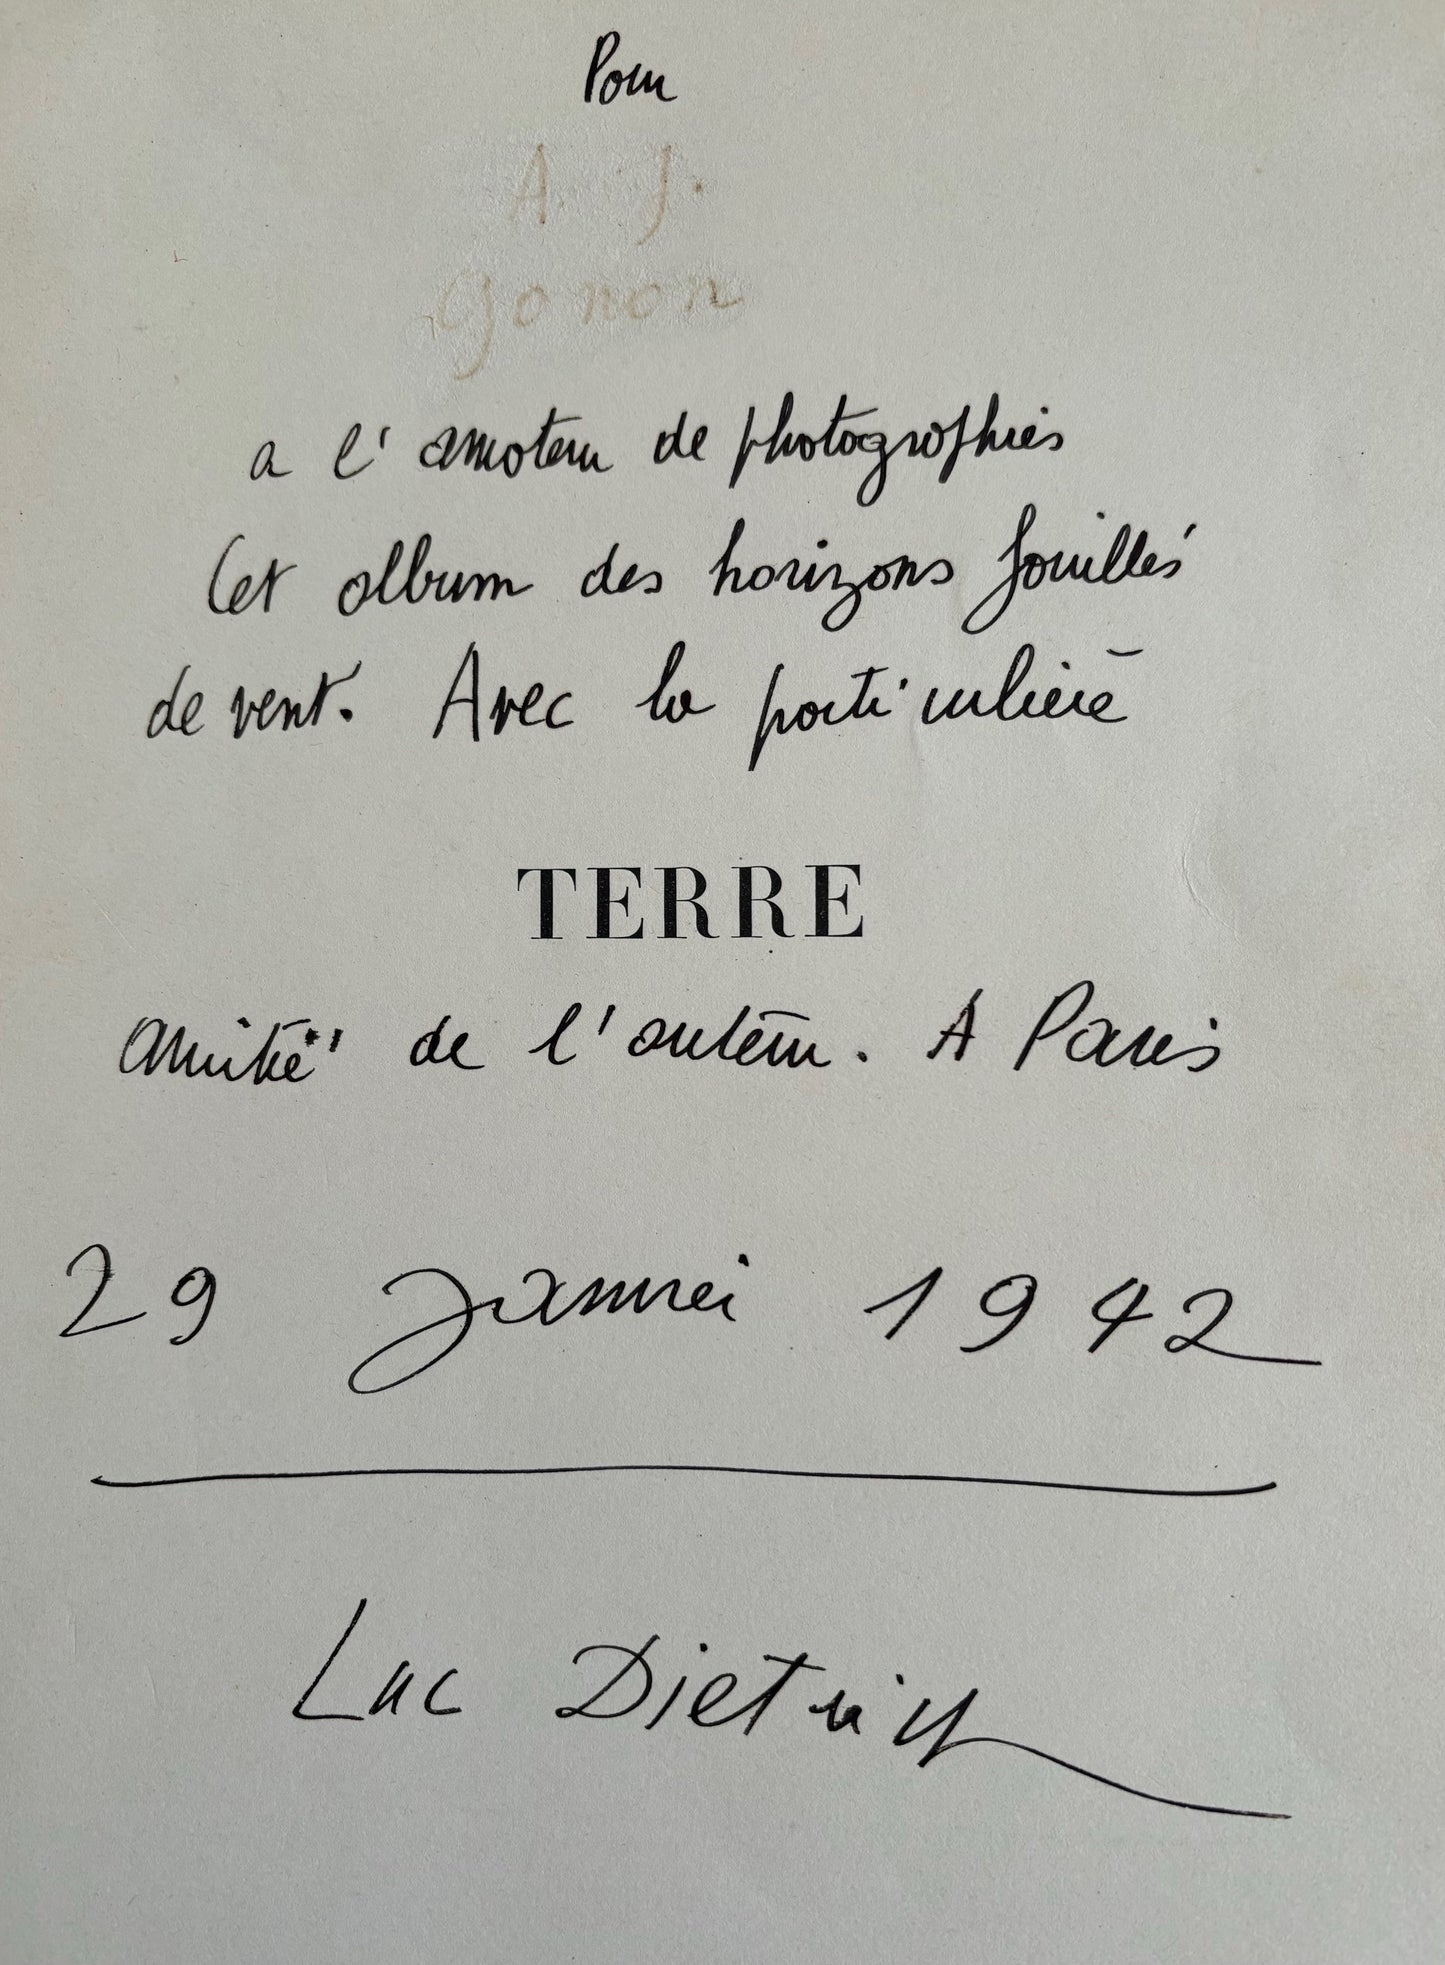 Pour
A. J.
Gonon
a l'amateur de photographies
Cet album des horizons fouillés
de vent. Avec la particulière
TERRE
amitié de l'auteur. A Paris
29 Janvier 1942
Luc Dietrich